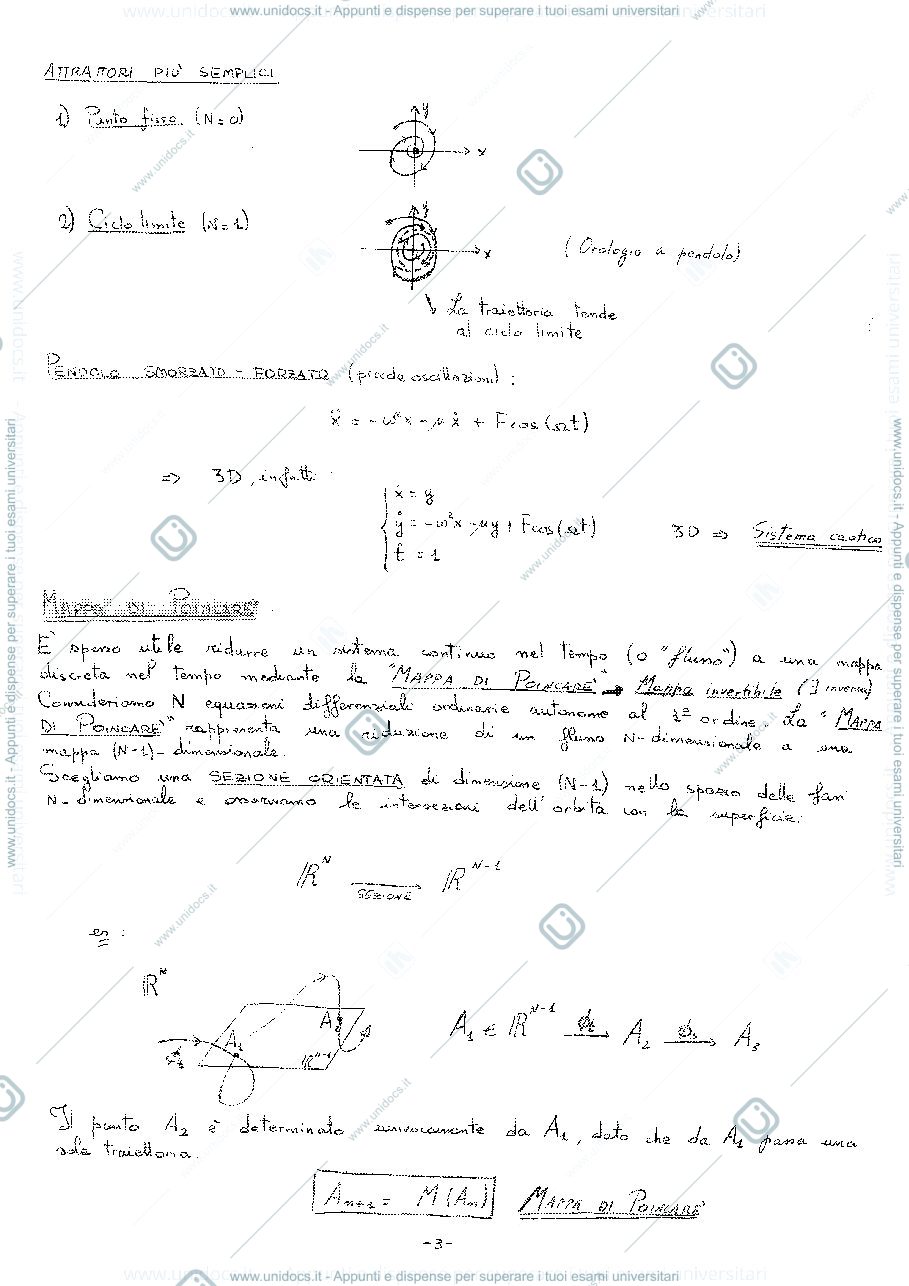 www.unidocs.it - Appunti e dispense per superare i tuoi esami universitari
ATTRATTORI PIU' SEMPLICI
1) Punto fisso (N=0)
y
x
2) Ciclo limite (N=1)
y
x
(Orologio a pendolo)
La traiettoria tende
al ciclo limite
PENDOLO SMORZATO - FORZATO (piccole oscillazioni) :
ẍ = -ω²x - μẋ + Fcos(Ωt)
=> 3D, infatti:
ẋ = y
ẏ = -ω²x - μy + Fcos(Ωt)
ṫ = 1
3D => Sistema caotico
MAPPA DI POINCARE'
E' spesso utile ridurre un sistema continuo nel tempo (o "flusso") a una mappa
discreta nel tempo mediante la "MAPPA DI POINCARE'" → Mappa invertibile (∃ inversa)
Consideriamo N equazioni differenziali ordinarie autonome al 1º ordine. La "MAPPA
DI POINCARE'" rappresenta una riduzione di un flusso N-dimensionale a una
mappa (N-1)-dimensionale.
Scegliamo una SEZIONE ORIENTATA di dimensione (N-1) nello spazio delle fasi
N-dimensionale e osserviamo le intersezioni dell'orbita con la superficie:
ℝᴺ → ℝᴺ⁻¹
SEZIONE
es :
ℝᴺ
A₁
A₂
ℝᴺ⁻¹
A₁ ∈ ℝᴺ⁻¹ → A₂ → A₃
Il punto A₂ è determinato univocamente da A₁, dato che da A₁ passa una
sola traiettoria.
Aₙ₊₁ = M(Aₙ) MAPPA DI POINCARE'
-3-
www.unidocs.it - Appunti e dispense per superare i tuoi esami universitari